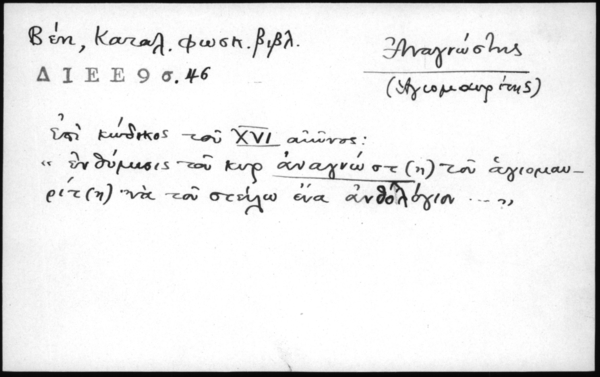 Βέη, Καταλ. φωσκ. βιβλ.
Δ Ι Ε Ε 9 σ. 46
Ἀναγνώστης
(Ἁγιομαυρίτης)
ἐπὶ κώδικος τοῦ XVI αἰῶνος:
« ἐνθύμισις τοῦ κυρ ἀναγνώστ(η) τοῦ ἁγιομαυ-
ρίτ(η) νὰ τοῦ στείλω ἕνα ἀνθολόγιον ... »